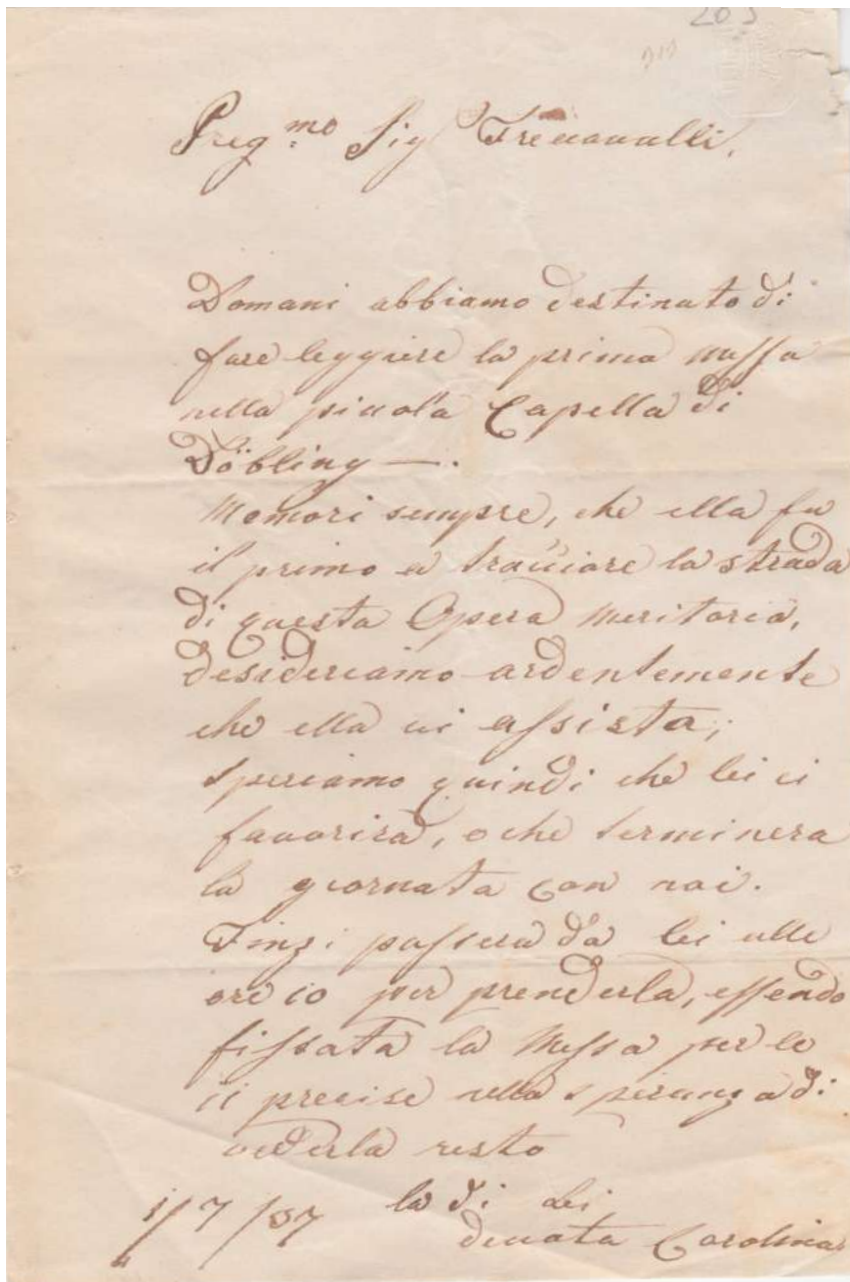 203
Preg.mo Sig.r Trecavalli,
Domani abbiamo destinato di
fare leggiere la prima messa
nella picola Capella di
Döbling —.
Memori sempre, che ella fu
il primo a tracciare la strada
di questa Opera meritoria,
desideriamo ardentemente
che ella ci assista;
speriamo quindi che lei ci
favorirà, e che terminera
la giornata con noi.
Finzi passerà da lei alle
ore 10 per prenderla, essendo
fissata la Messa per le
11 precise nella speranza di
vederla resto
la di Lei
1/7/57 devota Carolina